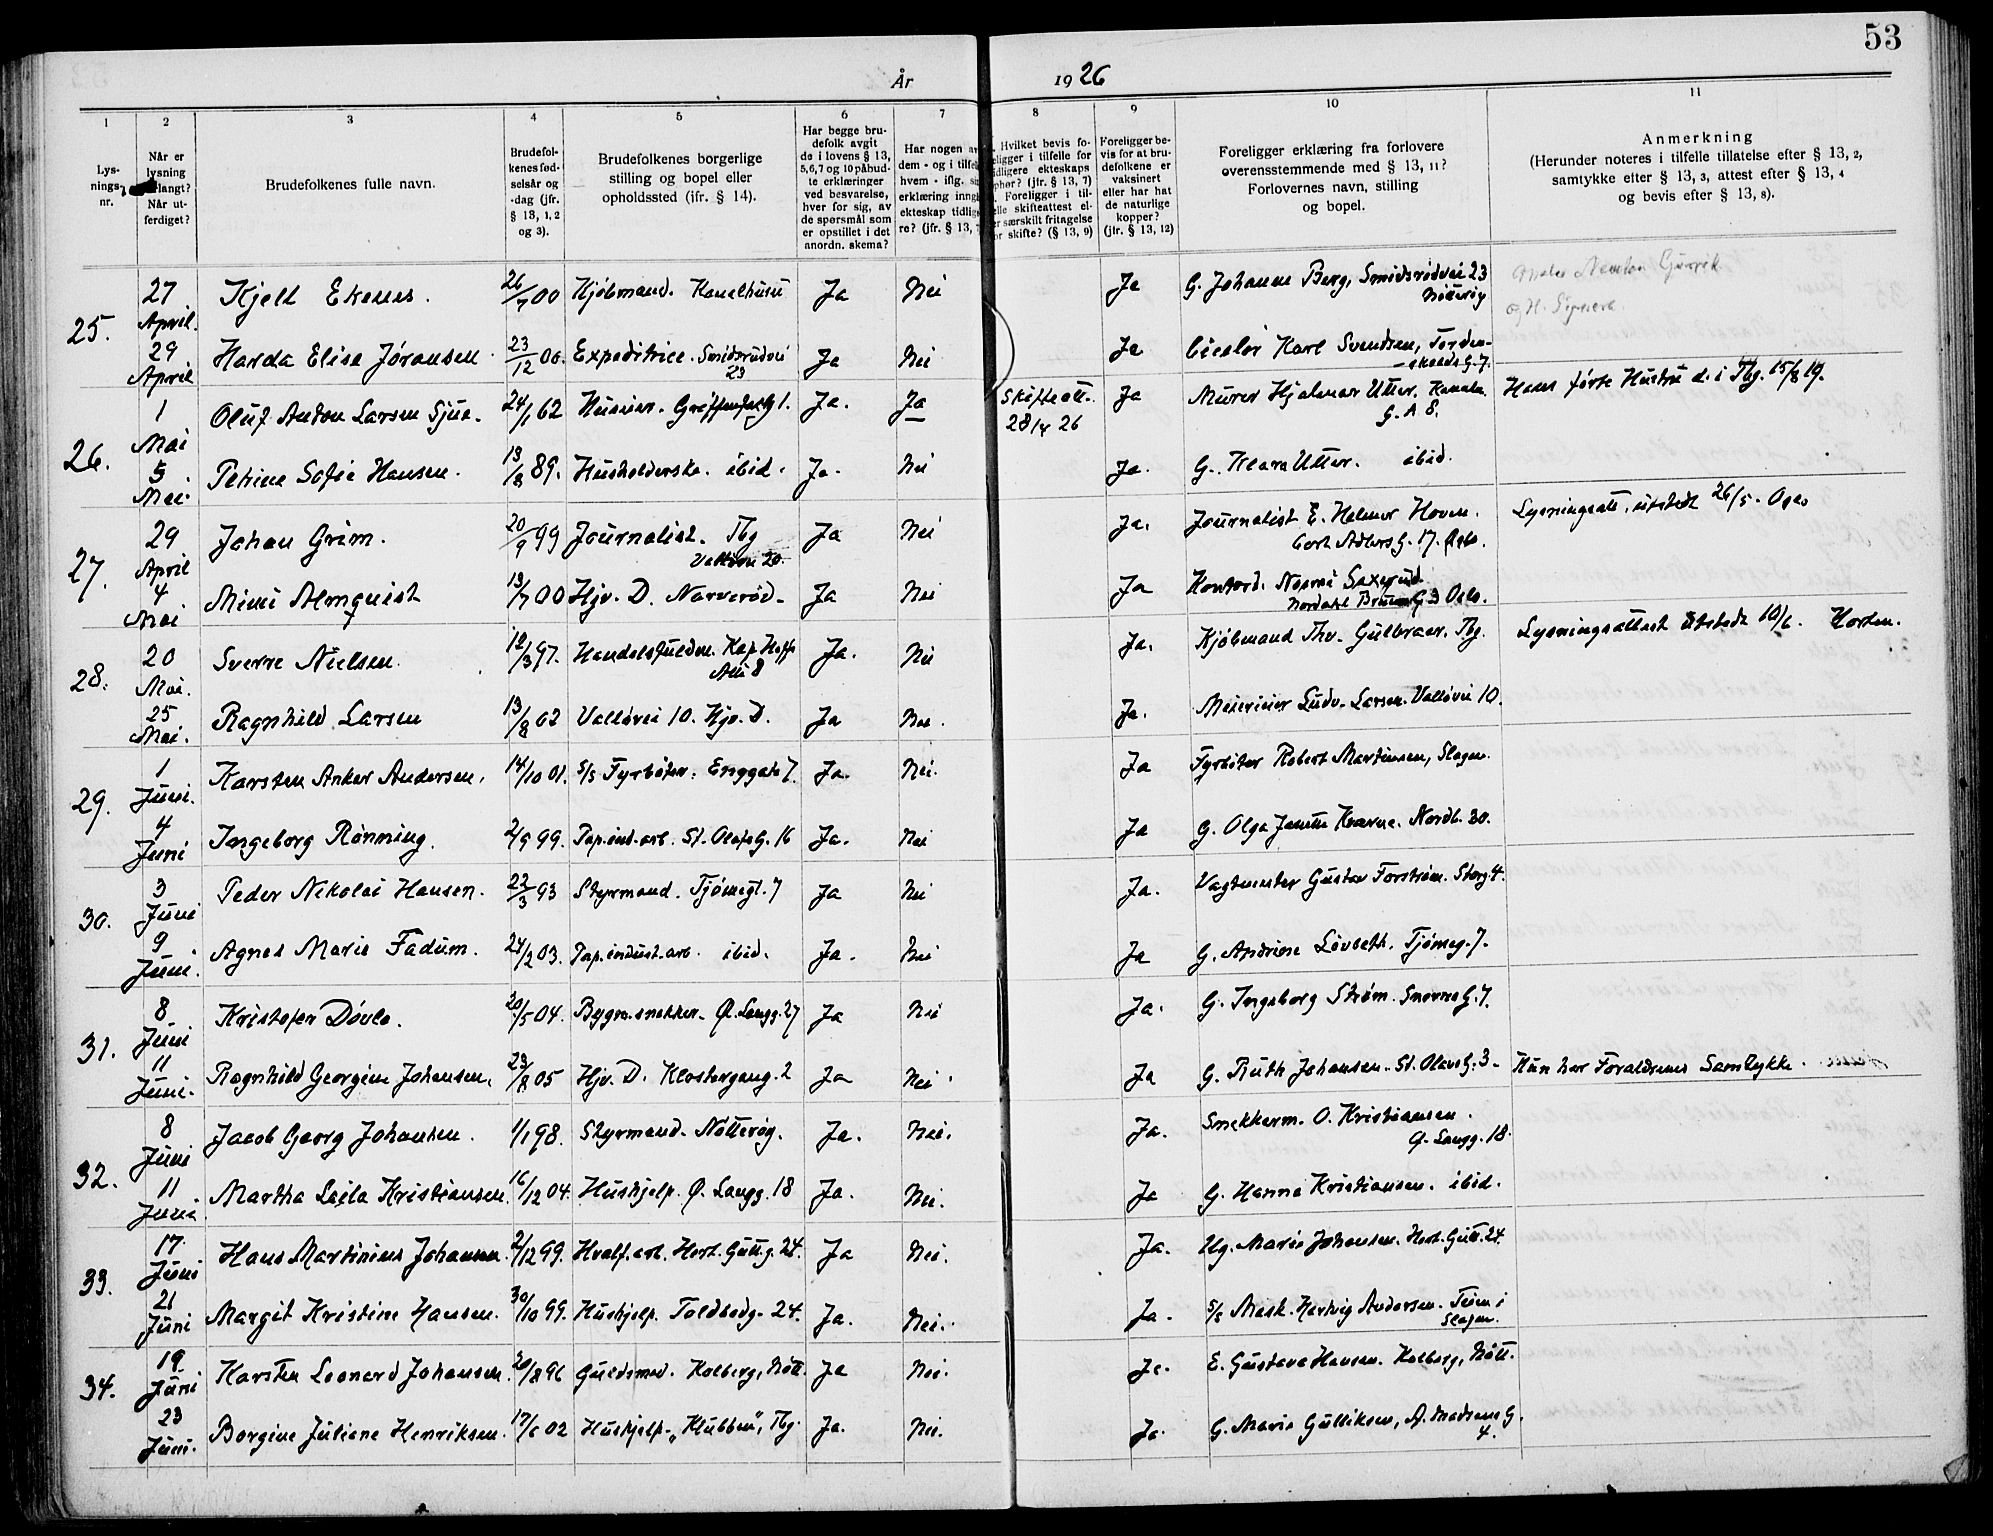 53
År 1926
1 2 3 4 5 6 7 8 9 10 11
Lys-
nings-
nr.
Når er
lysning
forlangt?
Når ut-
ferdiget?
Brudefolkenes fulle navn.
Brudefol-
kenes fød-
selsår og
-dag (jfr.
§ 13, 1, 2
og 3).
Brudefolkenes borgerlige
stilling og bopel eller
opholdssted (jfr. § 14).
Har begge bru-
defolk avgit
de i lovens § 13,
5,6,7 og 10 påbud-
te erklæringer
ved besvarelse,
hver for sig, av
de spørsmål som
er opstillet i det
anordn. skema?
Har nogen av
dem - og i tilfelle
hvem - iflg. sin
erklæring inngått
ekteskap tidlige-
re? (jfr. § 13, 7
Hvilket bevis fo-
religger i tilfelle for
tidligere ekteskaps
ophør? (jfr. § 13, 7)
Foreligger i til-
felle skifteattest el-
ler særskilt fritagelse
for skifte? (§ 13, 9)
Foreligger be-
vis for at bru-
defolkene er
vaksinert
eller har hat
de naturlige
kopper?
(jfr. § 13, 12)
Foreligger erklæring fra forlovere
overensstemmende med § 13, 11?
Forlovernes navn, stilling
og bopel.
Anmerkning
(Herunder noteres i tilfelle tillatelse efter § 13, 2,
samtykke efter § 13, 3, attest efter § 13, 4
og bevis efter § 13, 8).
25. 27 April. Kjell Ekenes. 26/7 00 Kjøbmand. Kanalhuset Ja Nei Ja G. Johanne Berg, Smidsrødvei 23
Nøtterøy
29 April Harda Elise Jóransen. 23/12 06. Expeditrice. Smidsrødvei
23 Ja Nei Ja Karl Svendsen, Torden-
skolds G. 7.
26. 1 Mai Oluf Anton Larsen Sjue. 24/1 62 1. Ja. Ja Skifteatt.
28/4 26 Ja Murer Hjalmar Utter.
G. A 8. Hans førte Hustru d. i Tbg. 15/8 19.
5 Mai. Petrine Sofie Hansen. 13/8 89. Husholderske. ibid. Ja. Nei Ja. G. Klara Utter. ibid.
27. 29 April Johan Grim. 20/9 99 Journalist. Tbg
Valløvei 20. Ja Nei Ja. Journalist E. Helmer Hoven.
Cort Adlers G. 17. Oslo. Lysningsatt. utstedt 26/5. Oslo
4 Mai Mimi Almquist 13/7 00 Hjv. D. Narverød. Ja Nei Ja Kontord.
Nordahl Bruuns G 3 Oslo.
28. 20 Mai. Sverre Nielsen. 12/3 97. Handelsfuldm. Kap. Hoffs
Alle 8 Ja. Nei Ja. Kjøbmand Thv. Gulbrans. Tbg. Lysningsattest utstedt 10/6. Horten.
25 Mai. Ragnhild Larsen 13/8 02 Valløvei 10. Hjv. D. Ja Nei. Ja. Meierieier Ludv. Larsen. Valløvei 10.
29. 1 Juni. Karsten Anker Andersen. 14/10 01. S/S Fyrbøter. Enggate 7. Ja. Nei. Ja Fyrbøter Robert Martinsen, Slagen.
4 Juni Ingeborg Rønning. 2/9 99. Pap.ind.arb. St. Olafs G. 16 Ja. Nei Ja G. Olga Nordb. 30.
30. 3 Juni Peder Nikolai Hansen. 22/3 93 Styrmand. Tjømegt. 7 Ja Nei Ja. Vagtmester Gustav Forstrøm. Storg 4.
9 Juni. Agnes Marie Fadum. 24/2 03. Pap.indust.arb. ibid. Ja. Nei Ja G. Andrine Løvseth. Tjømeg. 7.
31. 8 Juni Kristofer Døvle. 30/5 04. Bygn.snekker. Ø. Langg. 27 Ja Nei Ja. G. Ingeborg Strøm. G. 7.
11 Juni. Ragnhild Georgine Johansen. 23/8 05 Hjv. D. Klostergang. 2 Ja Nei. Ja G. Ruth Johansen. St. Olavs G. 3. Hun har Forældrenes Samtykke.
32. 8 Juni Jacob Georg Johansen. 1/1 98. Styrmand. Nøtterøy. Ja. Nei. Ja. Snekkerm. O. Kristiansen.
Ø. Langg. 18.
11 Juni. Martha Laila Kristiansen. 16/12 04. Hushjelp. Ø. Langg. 18 Ja. Nei. Ja G. Hanna Kristiansen. ibid.
33. 17 Juni Hans Martinius Johansen. 2/12 99. Hvalf.arb. Hert. Gutt.g. 24. Ja Nei. Ja. Ug. Marie Johansen. Hert. Gutt. 24.
21 Juni Margit Kristine Hansen. 30/10 99. Hushjelp. Toldbodg. 24. Ja. Nei. Ja. S/S Mask. Hertvig Andersen. Teien i
Slagen.
34. 19 Juni Karsten Leonard Johansen. 20/8 96 Guldsmed. Kolberg, Nøtt. Ja Nei. Ja. E. Gustava Hansen. Kolberg, Nøtt.
23 Juni. Borgine Juliane Henriksen. 17/6 02 Hushjelp. „Klubben", Tbg. Ja. Nei. Ja G. Marie Gulliksen, A. Madsens G.
4.